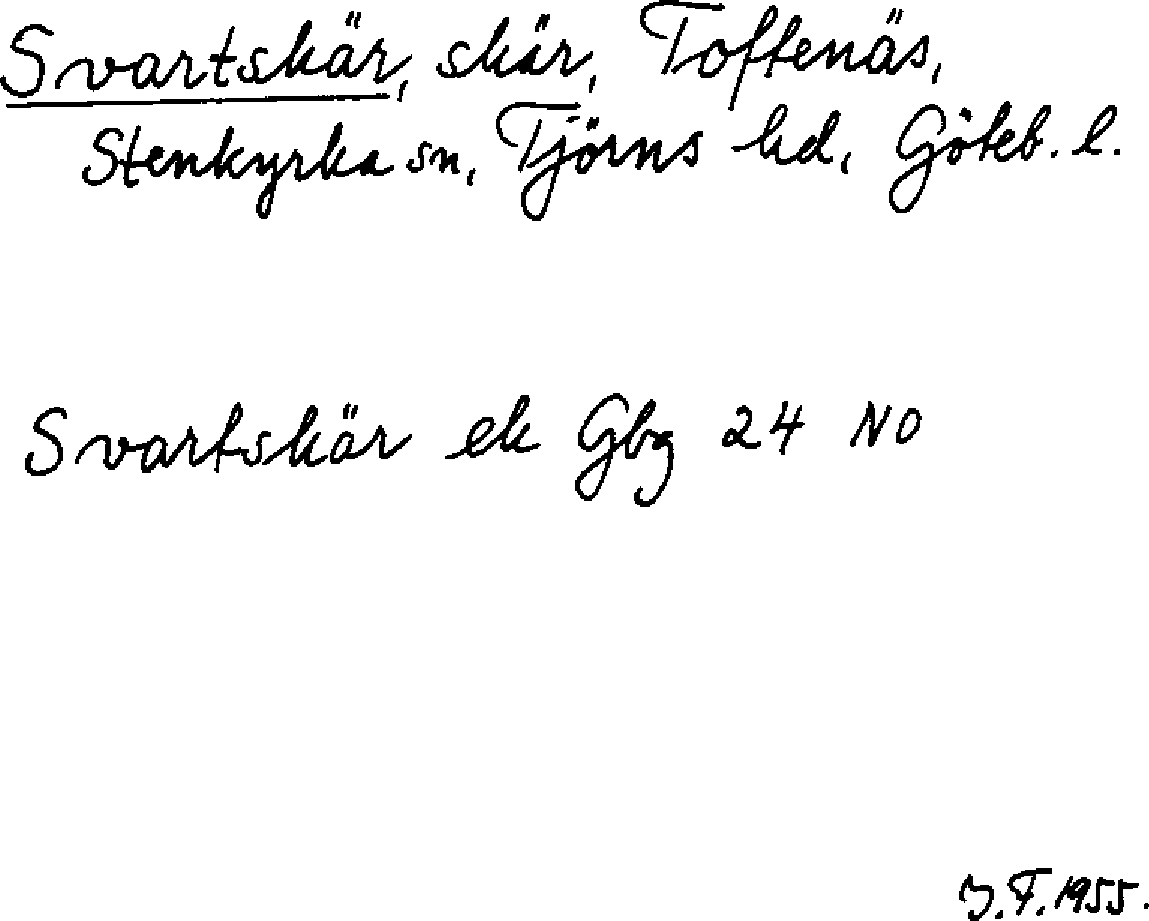 Svartskär, skär, Toftenäs,
Stenkyrka sn, Tjörns hd, Göteb. l.
Svartskär ek Gbg 24 NO
J.F. 1955.